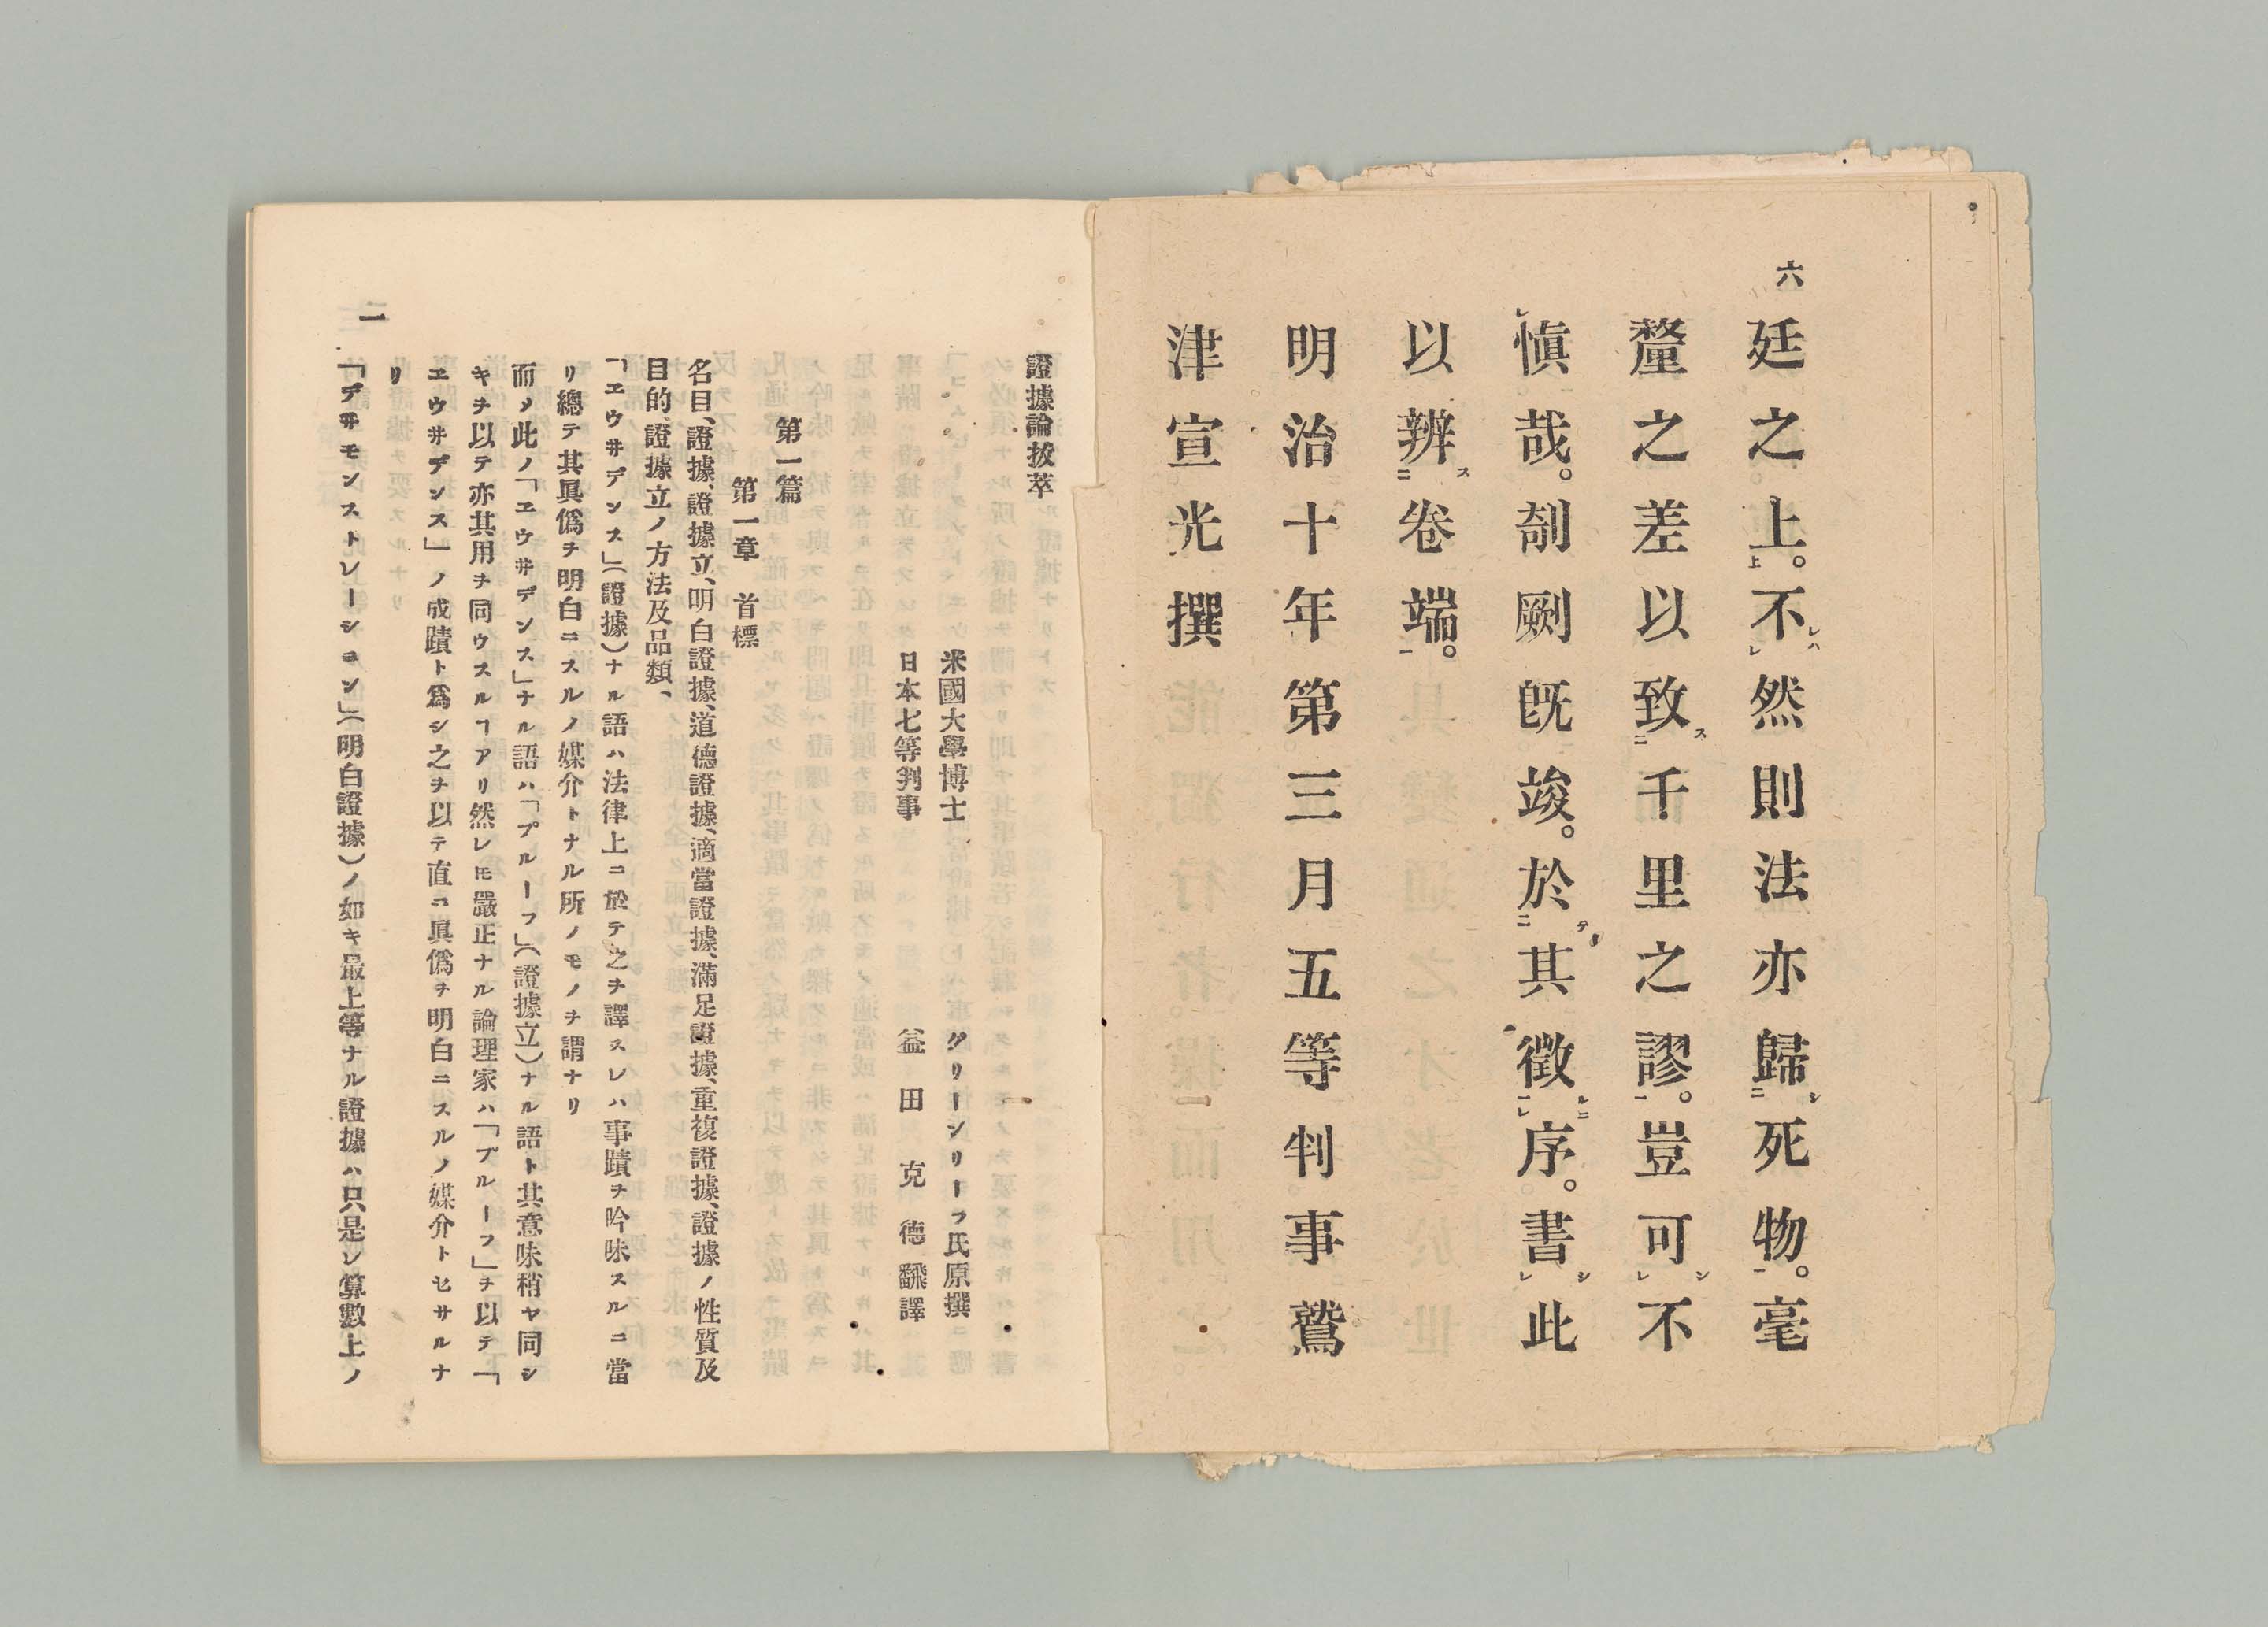 六
廷之上。不然則法亦歸死物。毫
釐之差以致千里之謬。豈可不
愼哉。剞劂旣竣。於其徵序。書此
以辨卷端。
明治十年第三月五等判事鷲
津宣光撰
證據論拔萃
米國大學博士 グリーンリーフ氏原撰
日本七等判事 益田克德飜譯
第一篇
第一章 首標
名目、證據、證據立、明白證據、道德證據、適當證據、滿足證據、重複證據、證據ノ性質及
目的、證據立ノ方法及品類、
「エウ井デンス」(證據)ナル語ハ法律上ニ於テ之ヲ譯スレハ事蹟ヲ吟味スルニ當
リ總テ其眞僞ヲ明白ニスルノ媒介トナル所ノモノヲ謂ナリ
而ノ此ノ「エウ井デンス」ナル語ハ「プルーフ」(證據立)ナル語ト其意味稍ヤ同シ
キヲ以テ亦其用ヲ同ウスルヿアリ然レ𪜈嚴正ナル論理家ハ「プルーフ」ヲ以テ「
エウ井デンス」ノ成蹟ト爲シ之ヲ以テ直ニ眞僞ヲ明白ニスルノ媒介トセサルナ
リ
「デ井モンストレーシヨン」(明白證據)ノ如キ最上等ナル證據ハ只是レ算數上ノ
一